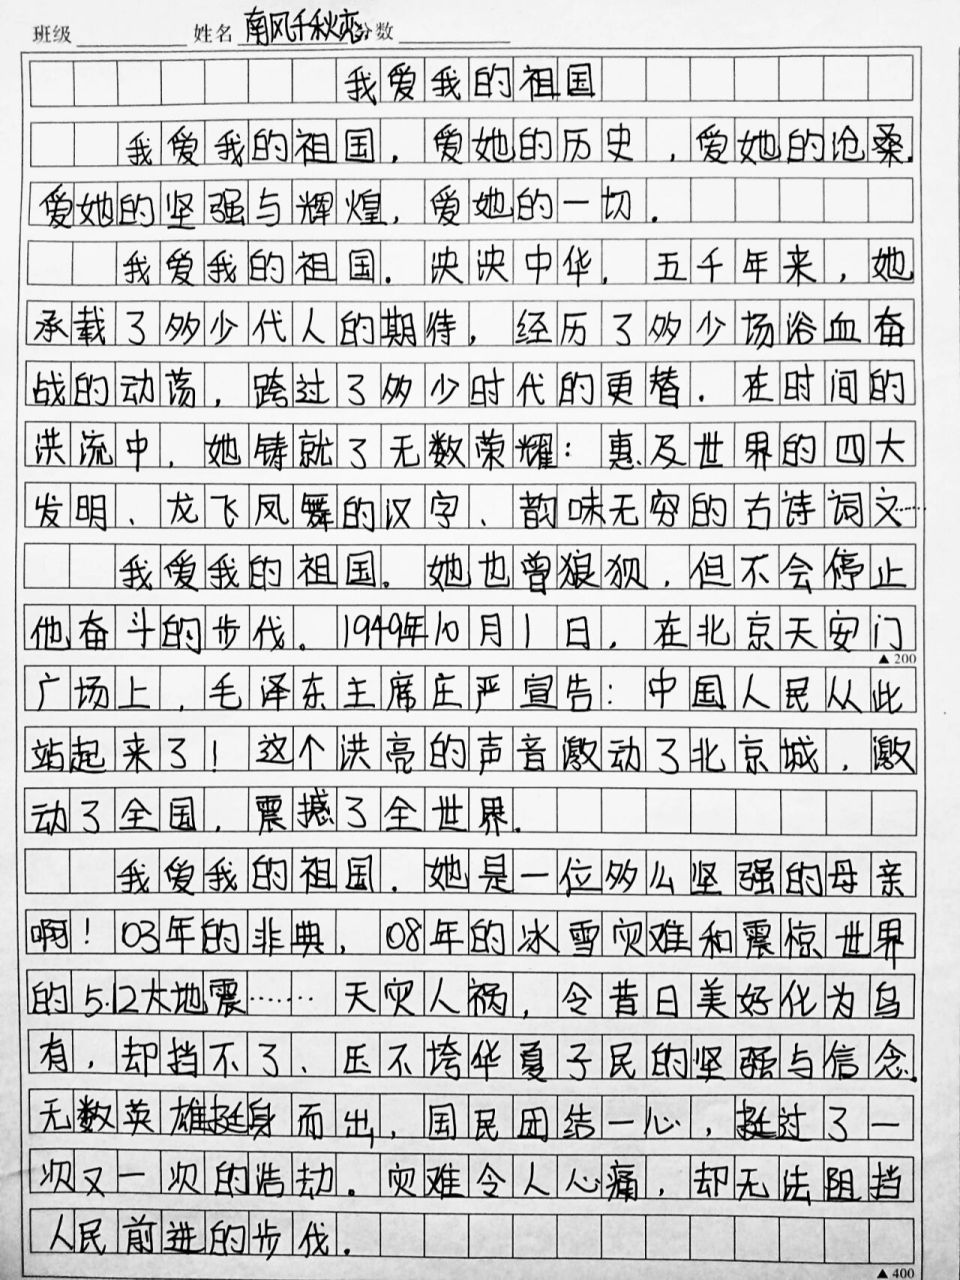 班级 姓名 南风千秋恋 分数
我爱我的祖国
我爱我的祖国，爱她的历史，爱她的沧桑，
爱她的坚强与辉煌，爱她的一切．
我爱我的祖国．泱泱中华，五千年来，她
承载了多少代人的期待，经历了多少场浴血奋
战的动荡，跨过了多少时代的更替．在时间的
洪流中，她铸就了无数荣耀：惠及世界的四大
发明、龙飞凤舞的汉字、韵味无穷的古诗词文……
我爱我的祖国。她也曾狼狈，但不会停止
他奋斗的步伐。1949年10月1日，在北京天安门
▲200
广场上，毛泽东主席庄严宣告：中国人民从此
站起来了！这个洪亮的声音激动了北京城，激
动了全国，震撼了全世界．
我爱我的祖国．她是一位多么坚强的母亲
啊！03年的非典，08年的冰雪灾难和震惊世界
的5·12大地震……天灾人祸，令昔日美好化为乌
有，却挡不了、压不垮华夏子民的坚强与信念．
无数英雄挺身而出，国民团结一心，挺过了一
次又一次的浩劫。灾难令人心痛，却无法阻挡
人民前进的步伐．
▲400